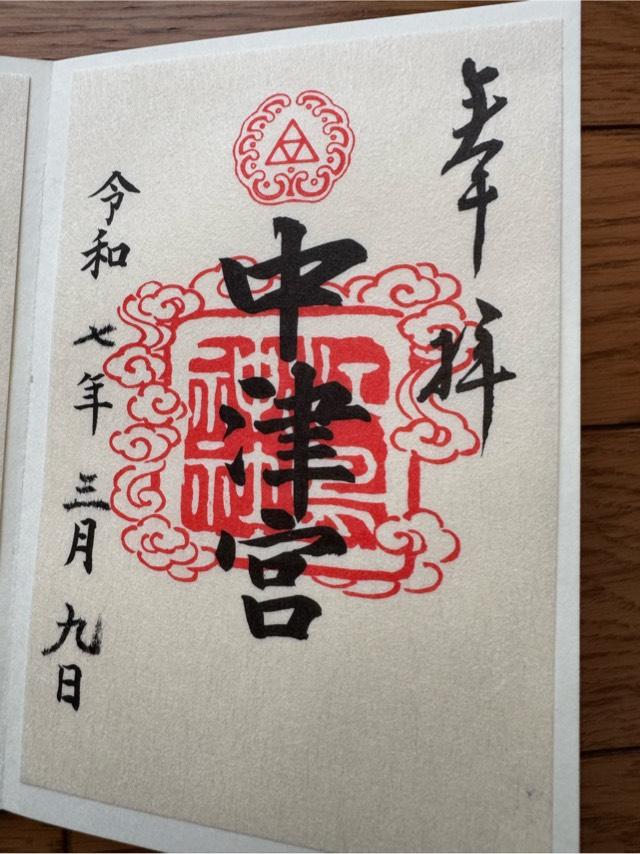 奉拝
中津宮
令和七年三月九日